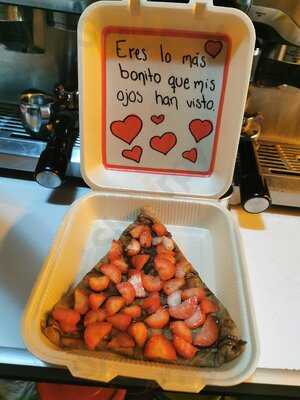 Eres lo más
bonito que mis
ojos han visto.